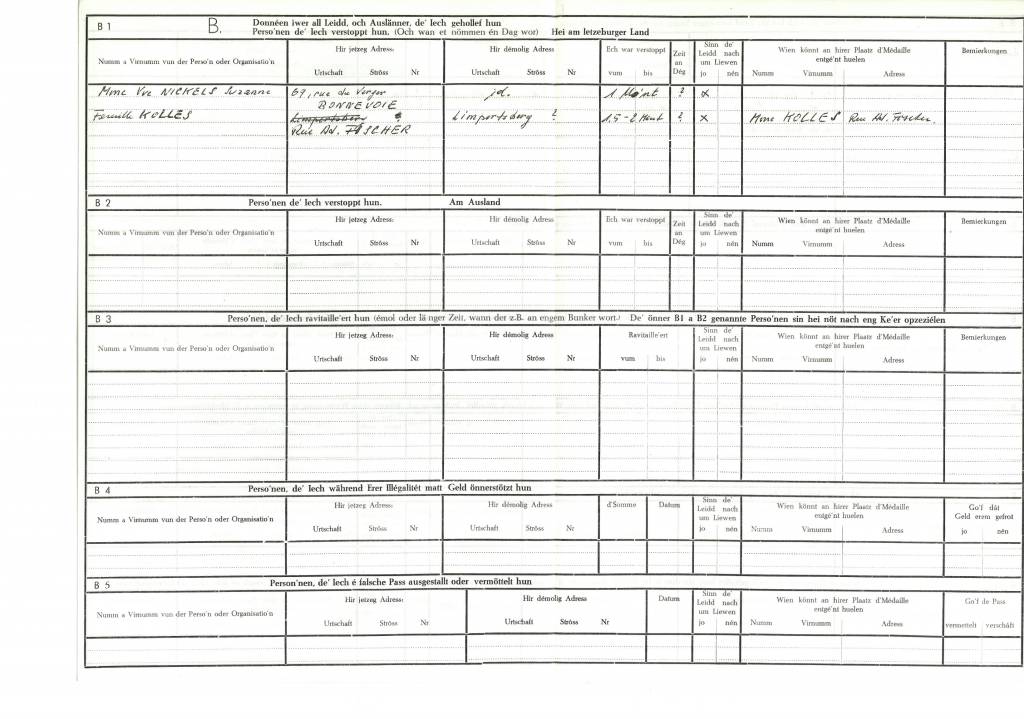 B 1 B. Donnéen iwer all Leidd, och Auslänner, de' Iech gehollef hun
Perso'nen de' Iech verstoppt hun. (Och wan et nömmen én Dag wor) Hei am letzeburger Land
Numm a Virnumm vun der Perso'n oder Organisatio'n
Hir jetzeg Adress:
Urtschaft Ströss Nr
Hir démolig Adress:
Urtschaft Ströss Nr
Ech war verstoppt
vum bis
Zeit
an
Dég
Sinn de'
Leidd nach
um Liewen
jo nén
Wien könnt an hirer Plaatz d'Médaille
entgé'nt huelen
Numm Virnumm Adress
Bemierkungen
Mme Vve NICKELS Suzanne 69, rue du Verger id. 1 Mo'nt ? x
BONNEVOIE
Famille KOLLES Limpertsberg ? Limpertsberg ? 1,5-2 Mont ? x Mme KOLLES Rue Ad. Fischer.
Rue Ad. FISCHER
B 2 Perso'nen de' Iech verstoppt hun. Am Ausland
Numm a Virnumm vun der Perso'n oder Organisatio'n
Hir jetzeg Adress:
Urtschaft Ströss Nr
Hir démolig Adress
Urtschaft Ströss Nr
Ech war verstoppt
vum bis
Zeit
an
Dég
Sinn de'
Leidd nach
um Liewen
jo nén
Wien könnt an hirer Plaatz d'Médaille
entgé'nt huelen
Numm Virnumm Adress
Bemierkungen
B 3 Perso'nen, de' Iech ravitaille'ert hun (émol oder länger Zeit, wann der z.B. an engem Bunker wort.) De' önner B1 a B2 genannte Perso'nen sin hei nöt nach eng Ke'er opzeziélen
Numm a Virnumm vun der Perso'n oder Organisatio'n
Hir jetzeg Adress:
Urtschaft Ströss Nr
Hir démolig Adress
Urtschaft Ströss Nr
Ravitaille'ert
vum bis
Sinn de'
Leidd nach
um Liewen
jo nén
Wien könnt an hirer Plaatz d'Médaille
entgé'nt huelen
Numm Virnumm Adress
Bemierkungen
B 4 Perso'nen, de' Iech während Erer Illégalitét matt Geld önnerstötzt hun
Numm a Virnumm vun der Perso'n oder Organisatio'n
Hir jetzeg Adress:
Urtschaft Ströss Nr
Hir démolig Adress
Urtschaft Ströss Nr
d'Somme
Datum
Sinn de'
Leidd nach
um Liewen
jo nén
Wien könnt an hirer Plaatz d'Médaille
entgé'nt huelen
Numm Virnumm Adress
Go'f dât
Geld erem gefrot
jo nén
B 5 Person'nen, de' Iech é falsche Pass ausgestallt oder vermöttelt hun
Numm a Virnumm vun der Perso'n oder Organisatio'n
Hir jetzeg Adress:
Urtschaft Ströss Nr
Hir démolig Adress
Urtschaft Ströss Nr
Datum
Sinn de'
Leidd nach
um Liewen
jo nén
Wien könnt an hirer Plaatz d'Médaille
entgé'nt huelen
Numm Virnumm Adress
Go'f de Pass
vermettelt verschâft